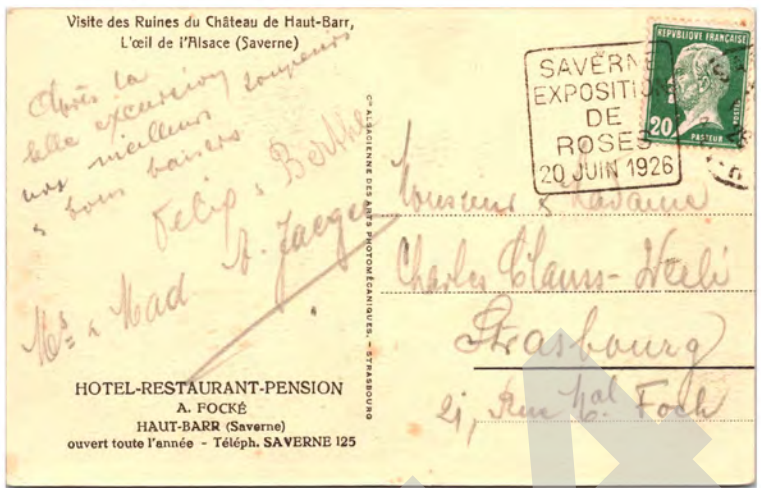 Visite des Ruines du Château de Haut-Barr,
L'œil de l'Alsace (Saverne)
Après la
belle excursion
nos meilleurs
& bons baisers
Felix & Berthe
Mr & Mad. A. Jaeger
HOTEL-RESTAURANT-PENSION
A. FOCKÉ
HAUT-BARR (Saverne)
ouvert toute l'année - Téléph. SAVERNE 125
Cie ALSACIENNE DES ARTS PHOTOMÉCANIQUES. - STRASBOURG
SAVERNE
EXPOSITION
DE
ROSES
20 JUIN 1926
REPUBLIQUE FRANÇAISE
POSTES
20
PASTEUR
Monsieur & Madame
Charles Clauss-
Strasbourg
21, Rue Mal Foch